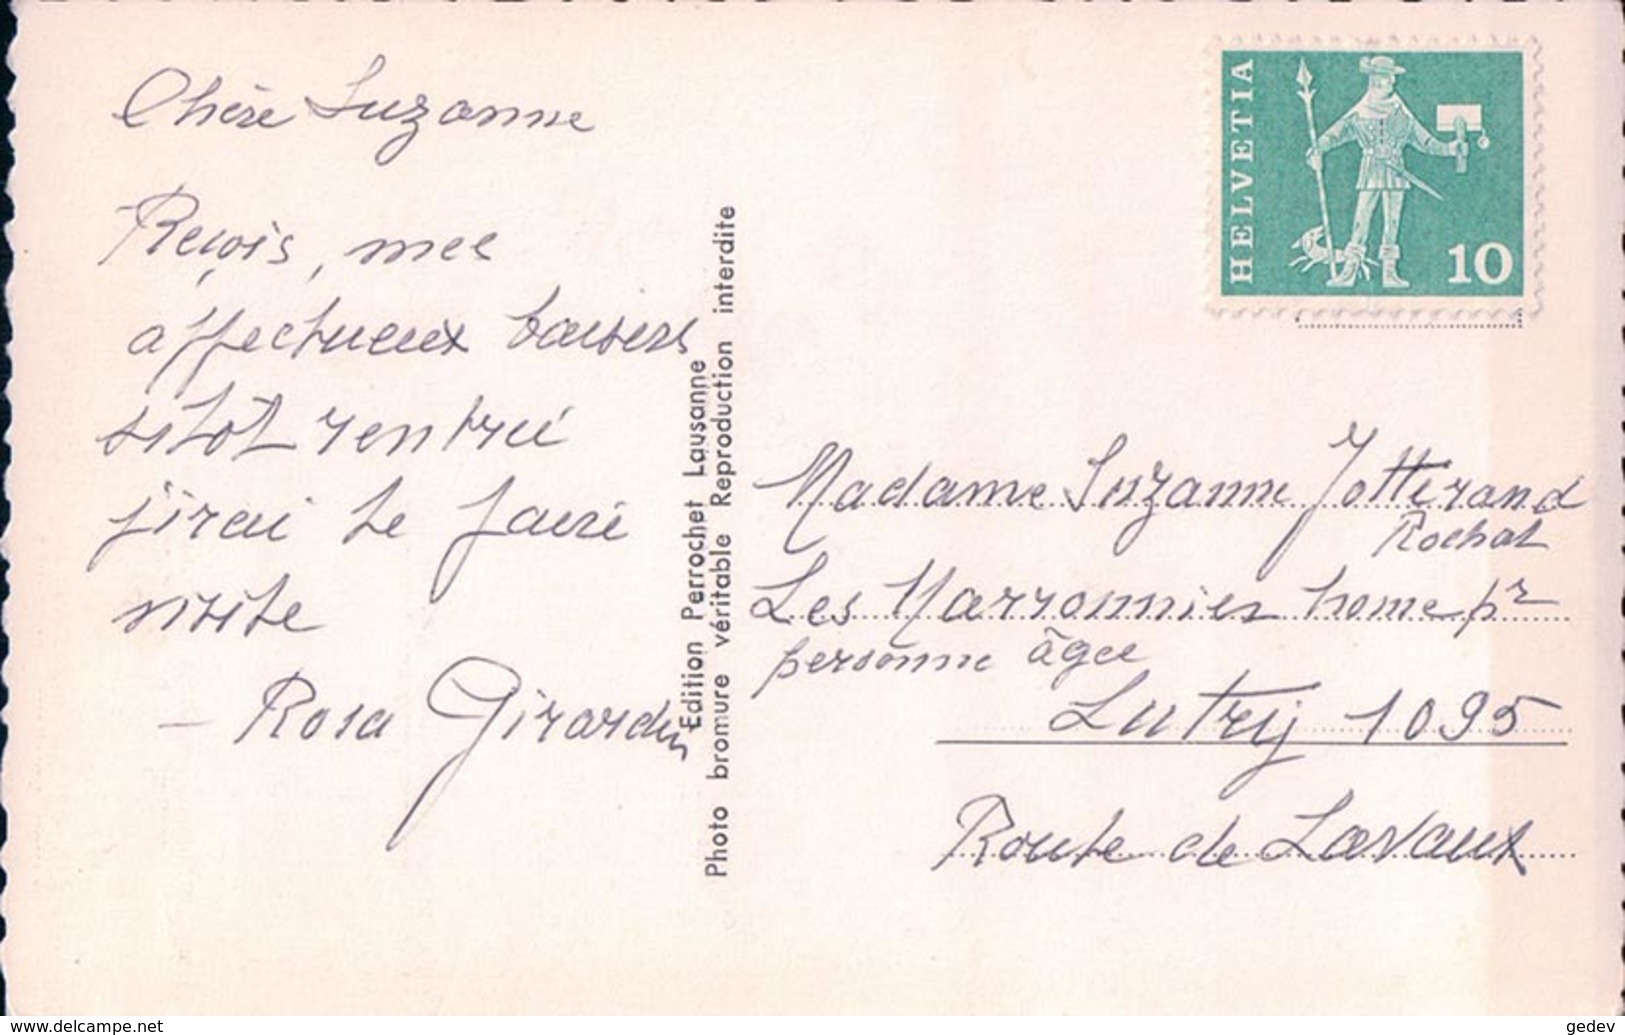 Chère Suzanne
Reçois, mes
affectueux baisers
sitôt rentré
j'irai te faire
visite
– Rosa Girardin
Edition Perrochet Lausanne
Photo bromure véritable Reproduction interdite
HELVETIA
10
Madame Suzanne Jotterand
Rochat
Les Marronnier home pr
personne âgée
Lutry 1095
Route de Lavaux
www.delcampe.net
gedev